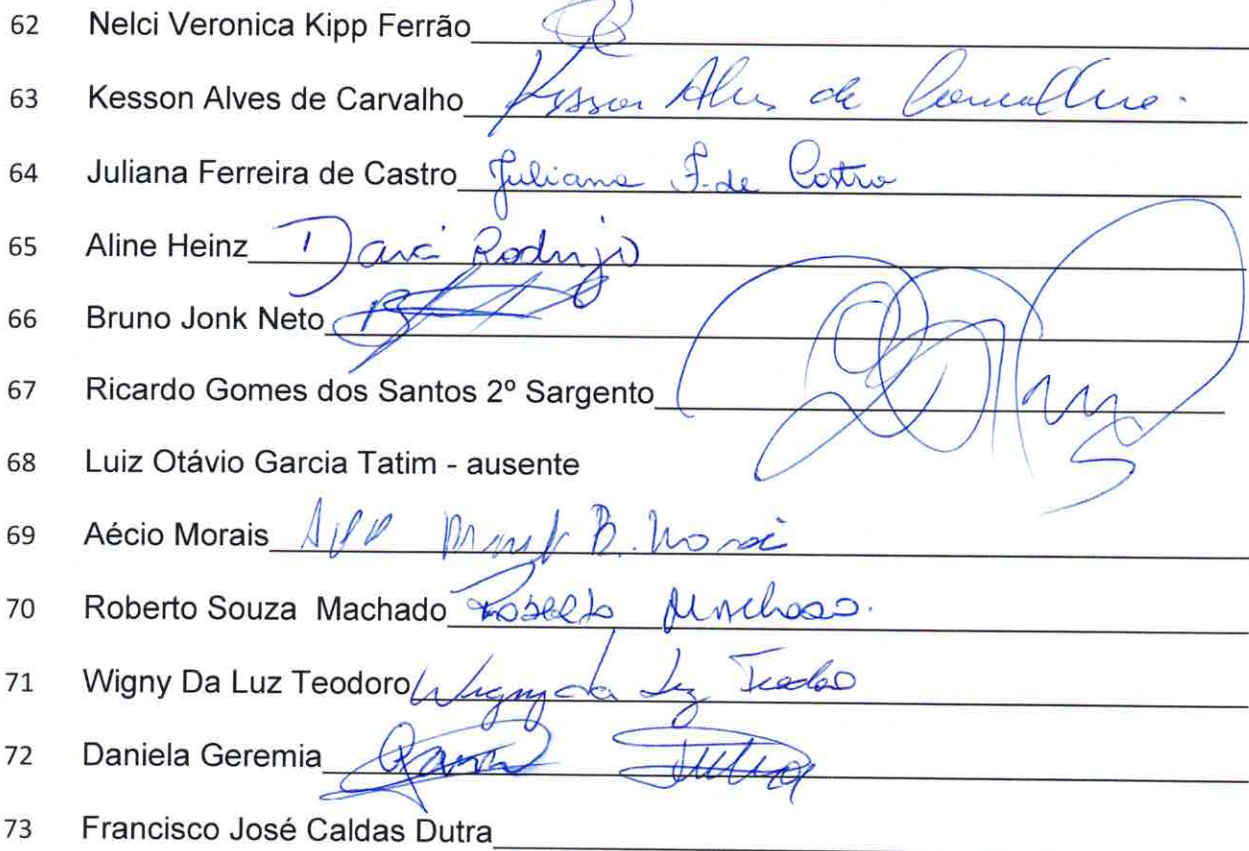 62 Nelci Veronica Kipp Ferrão
63 Kesson Alves de Carvalho Kesson Alves de Carvalho.
64 Juliana Ferreira de Castro Juliana F. de Castro
65 Aline Heinz Darci Rodrigo
66 Bruno Jonk Neto
67 Ricardo Gomes dos Santos 2º Sargento
68 Luiz Otávio Garcia Tatim - ausente
69 Aécio Morais B. Morais
70 Roberto Souza Machado Roberto Machado.
71 Wigny Da Luz Teodoro Wigny da Luz Teodoro
72 Daniela Geremia
73 Francisco José Caldas Dutra